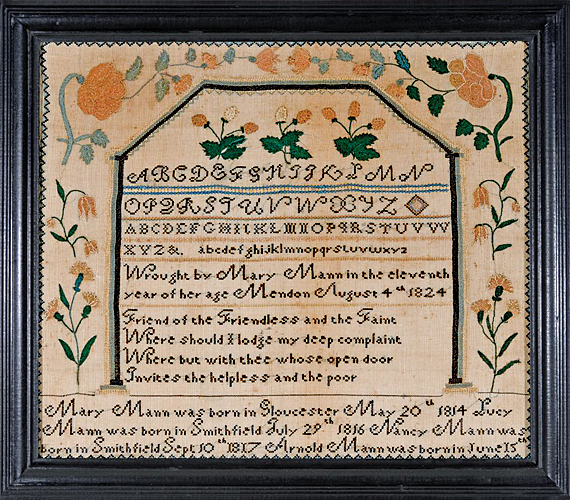 ABCDEFGHIJKLMN
OPQRSTUVWXYZ
ABCDEFGHIJKLMNOPQRSTUVW
XYZ&. abcdefghijklmnopqrstuvwxyz
Wrought by Mary Mann in the eleventh
year of her age Mendon August 4th 1824
Friend of the Friendless and the Faint
Where should I lodge my deep complaint
Where but with thee whose open door
Invites the helpless and the poor
Mary Mann was born in Gloucester May 20th 1814 Lucy
Mann was born in Smithfield July 29th 1816 Nancy Mann was
born in Smithfield Sept 10th 1817 Arnold Mann was born in June 15th